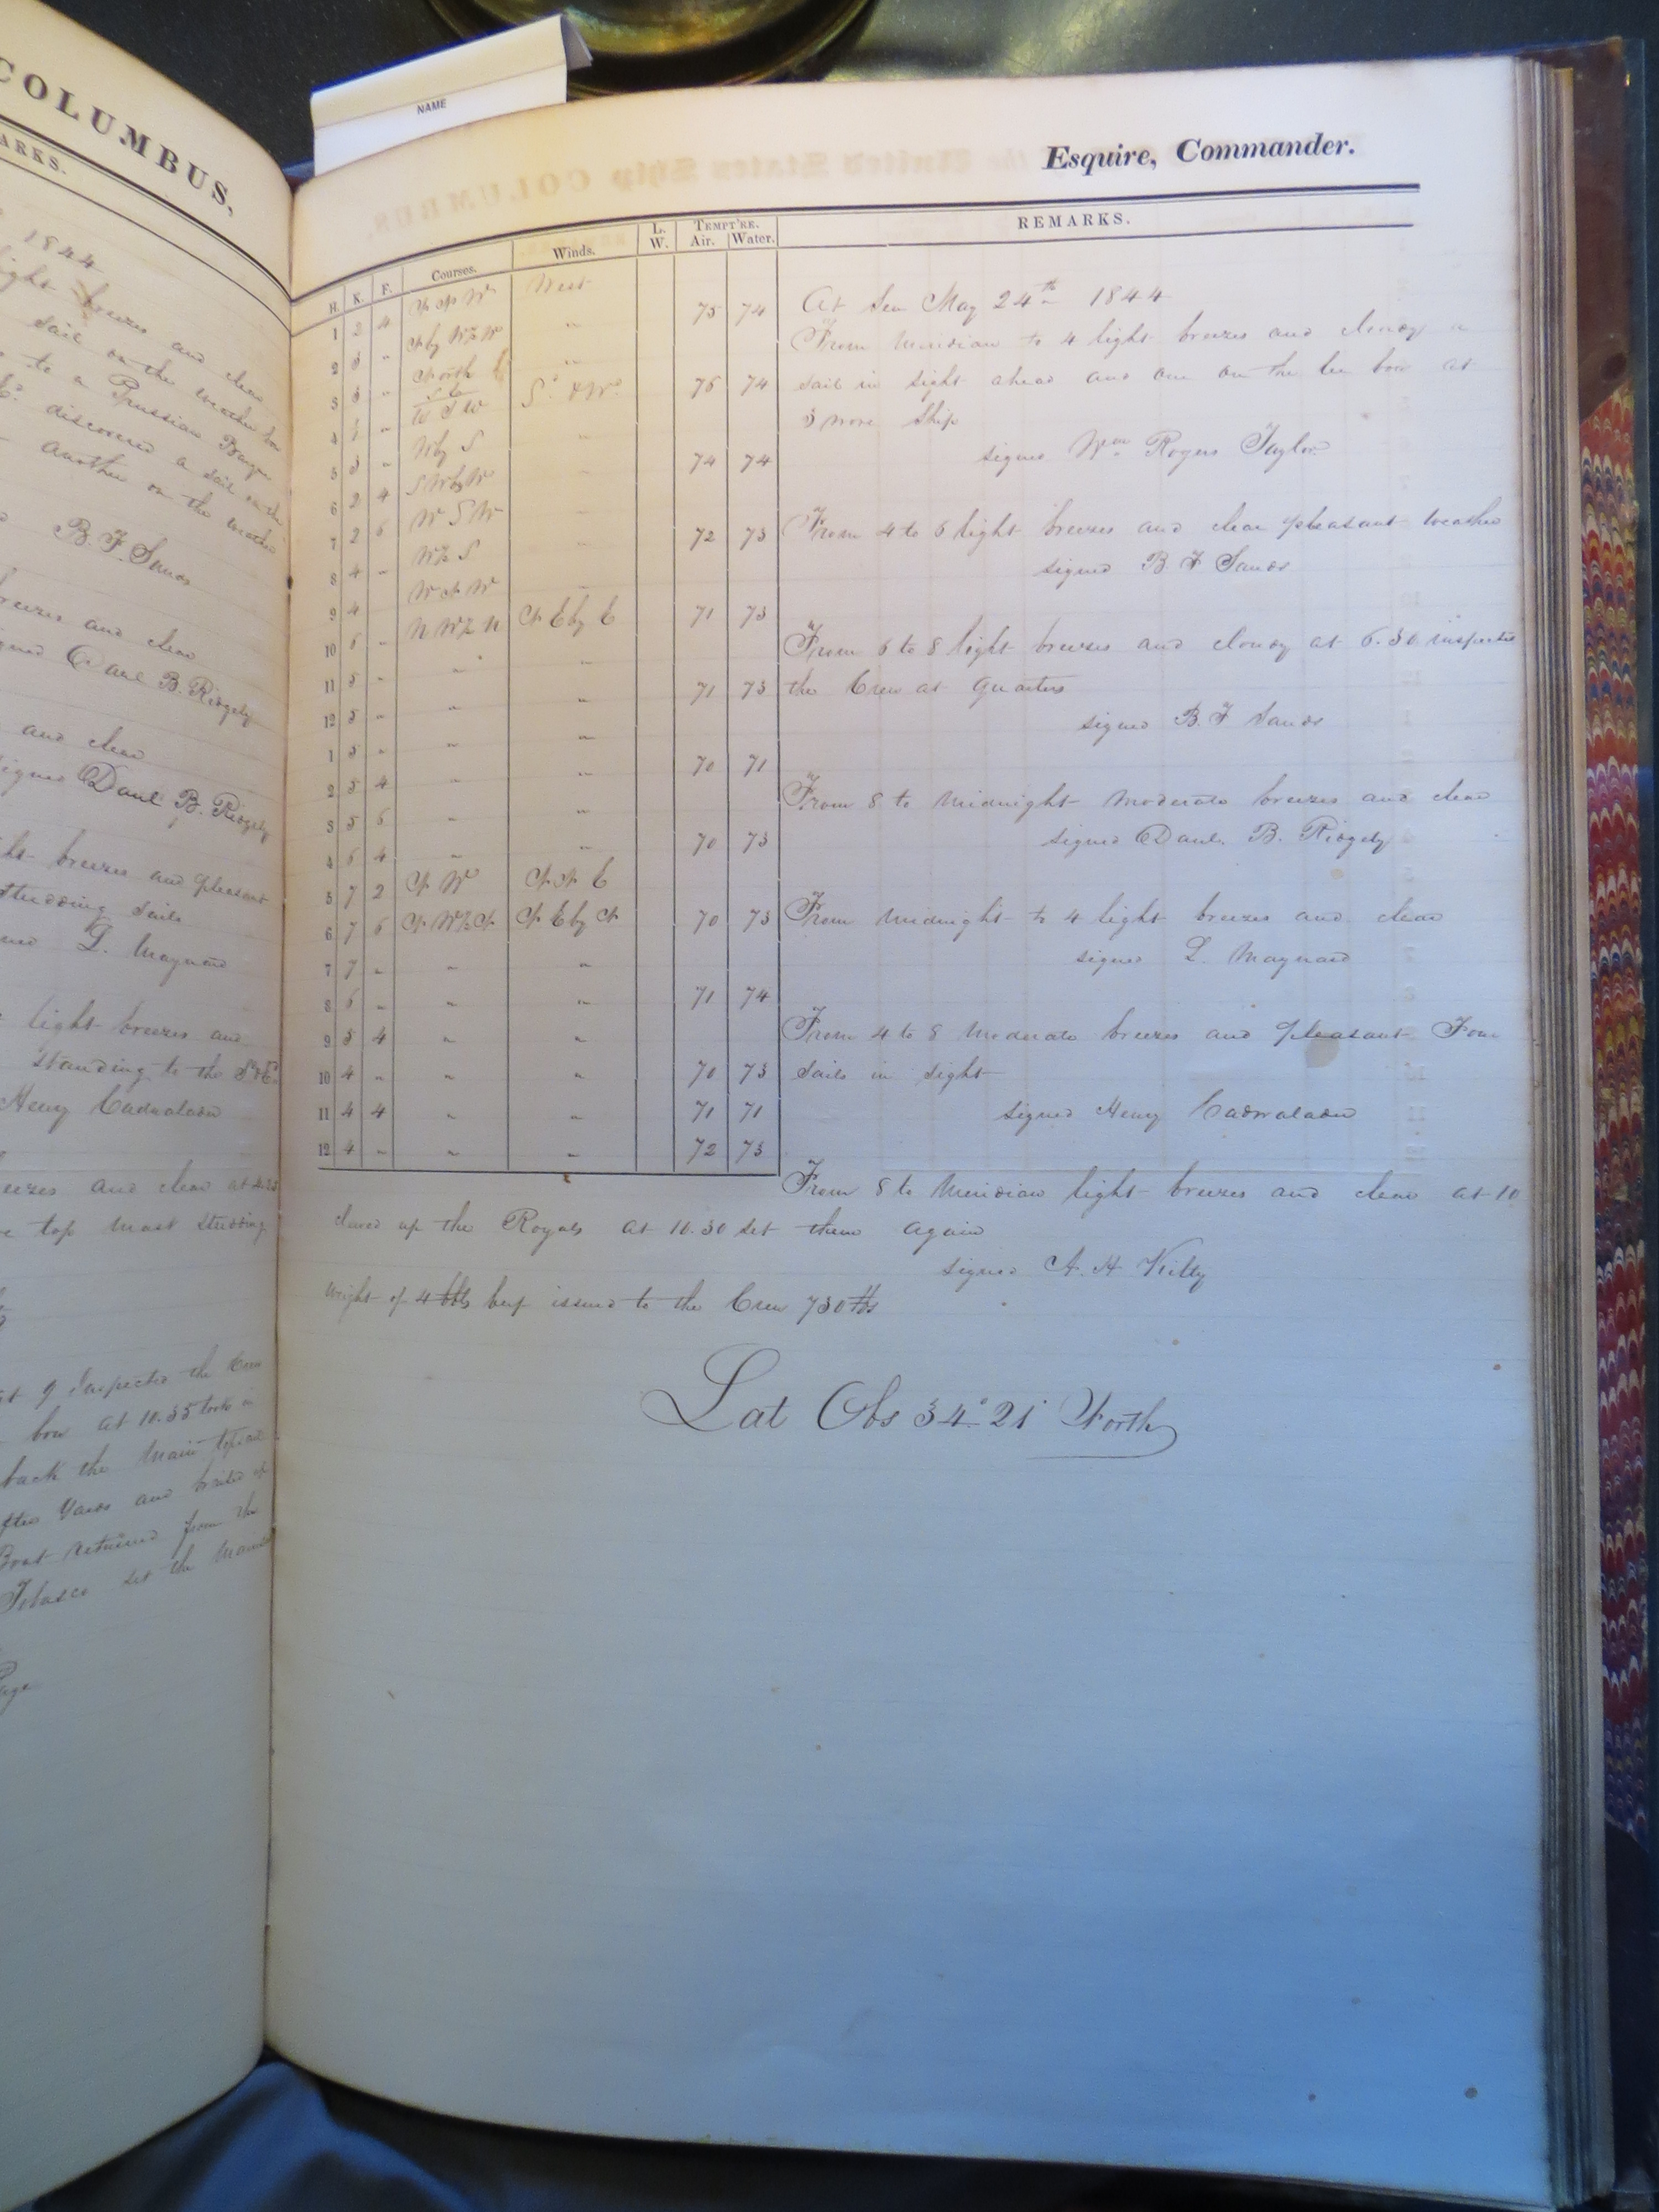 COLUMBUS,
ARKS.
1844
light breezes and clear
sail on the weather bow
to a Prussian Barque
discovered a sail on the
another on the weather
B. F. Sands
breezes and clear
signed Danl B. Ridgely
and clear
signed Danl B. Ridgely
light breezes and pleasant
studding sails
signed L. Maynard
light breezes and
standing to the Sd & Ed
Henry Cadwalader
breezes and clear at
top mast studding
at 9 Inspected the Crew
bow at 10.35 took in
back the Main topsail
after Yards and
Boat returned from the
Tobasco set the Main
Page
NAME
Esquire, Commander.
H. K. F. Courses. Winds. L. W. TEMPT'RE. Air. Water. REMARKS.
At Sea May 24th 1844
1 2 4 N N W West
2 3 " N by W ½ W " 75 74
From Meridian to 4 light breezes and cloudy a
3 3 " North "
4 " S to W S W Sd & Wd 76 74
sail in sight ahead and one on the lee bow at
3 wore Ship
5 3 " W by S "
signed Wm Rogers Taylor
6 2 4 S W by W " 74 74
7 2 6 W S W "
8 4 " W ½ S " 72 73
From 4 to 6 light breezes and clear pleasant weather
signed B F Sands
9 4 W N W "
10 6 " N W ½ N N E by E 71 73
From 6 to 8 light breezes and cloudy at 6.30 inspected
11 5 " " "
12 5 " " " 71 73
the Crew at Quarters
signed B. F Sands
1 5 " " "
2 5 4 " " 70 71
From 8 to Midnight Moderate breezes and clear
3 5 6 " "
4 6 4 " " 70 73
signed Danl. B. Ridgely
5 7 2 N W N N E
6 7 6 N W ½ N N E by N 70 73
From Midnight to 4 light breezes and clear
signed L. Maynard
7 7 " " "
8 6 " " " 71 74
9 5 4 " "
From 4 to 8 Moderate breezes and pleasant Four
10 4 " " " 70 73
sails in sight
11 4 4 " " 71 71
signed Henry Cadwalader
12 4 " " " 72 73
From 8 to Meridian light breezes and clear at 10
clewed up the Royals at 10.30 set them again
signed A. H Kilty
Weight of 4 bbls beef issued to the Crew 730 lbs
Lat Obs 34° 21' North